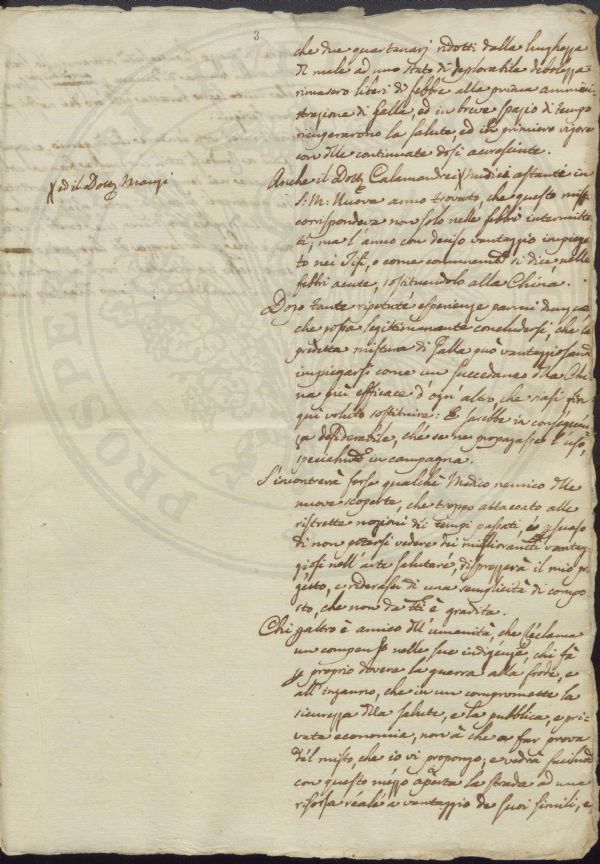 3
che due quartanarj ridotti dalla lunghezza
di male ad uno stato di deplorabile debolezza
rimasero liberi di febbre alla prima ammini
strazione di Galla, ed in breve spazio di tempo
ricuperarono la salute, ed il primiero vigore
con dlle continuate dosi
Anche il Dott. Calamandrei X Medico astante in
X ed il Dott. Menzi
S: M: Nuova anno trovato, che questo misto
corrispondeva non solo nelle febbri intermitte
ti, ma l'anno con deciso vantaggio impiega
to nei Tifi, o come comunemte si dice nelle
febbri acute, sostituendolo alla China.
Dopo tante ripetute esperienze parmi dunque
che possa legitimamente concludersi, che la
pred.etta mistura di Galla può vantaggiosamte
impiegarsi come un succedaneo dlla Chi
na più efficace d'ogn'altro, che siasi fin
qui voluto sostituire: E sarebbe in conseguen
za desiderabile, che se ne propagasse l'uso,
specialmte in campagna.
S'incontrerà forse qualche Medico nemico dlle
nuove scoperte, che troppo attaccato alle
ristrette nozioni dei tempi passati, e
di non potersi vedere dei miglioramti vantag
giosi nell'arte salutare, disprezzerà il mio pro
getto, e riderassi di una semplicità di compo
sto, che non da Tti è gradita.
Chi p altro è amico dll'umanità, che reclama
un compenso nelle sue indigenze, chi fà
p proprio dovere la guerra alla frode, e
all'inganno, che in un compromette la
sicurezza dlla salute, e la pubblica, e pri
vata economia, non à che a far prova
del misto, che io vi propongo; e vedrà facilmte
con questo mezzo aperta la strada ad una
risorsa reale a vantaggio de suoi simili, e
PROSPE